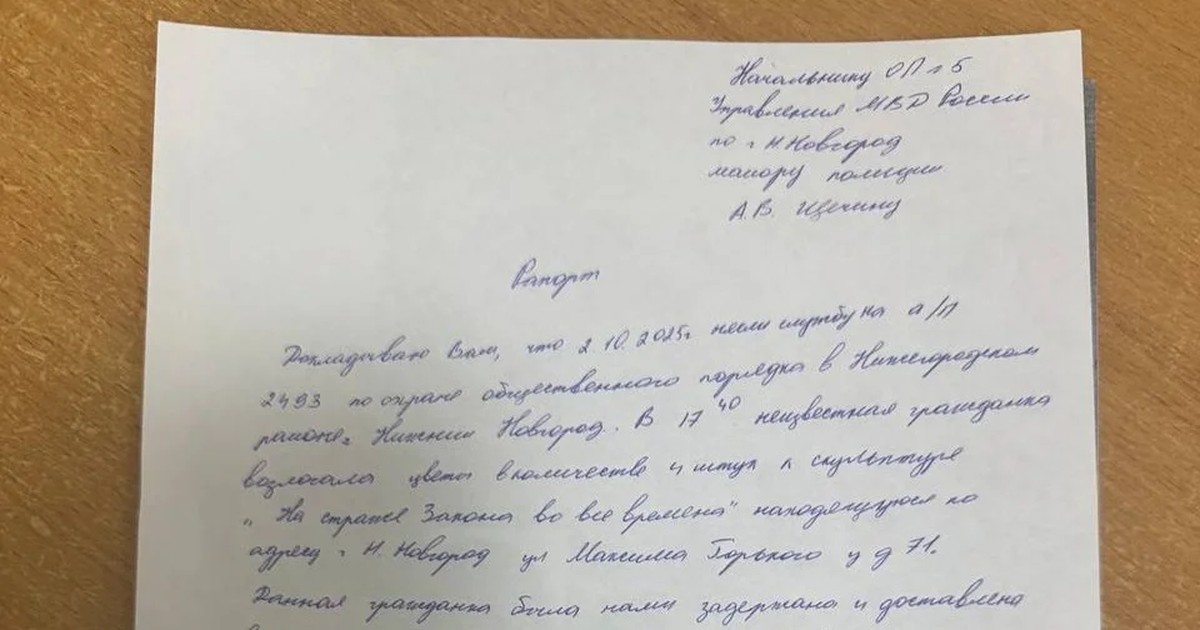 Начальнику ОП №5
Управления МВД России
по г Н.Новгород
майору полиции
А.В. Щечину
Рапорт
Докладываю Вам, что 2.10.2025г несли службу на а/п
2493 по охране общественного порядка в Нижегородском
районе г Нижний Новгород. В 17 40 неизвестная гражданка
возлагала цветы в количестве 4 штук к скульптуре
"На страже Закона во все времена" находящуюся по
адресу г Н. Новгород ул Максима Горького у д 71.
Данная гражданка была нами задержана и доставлена